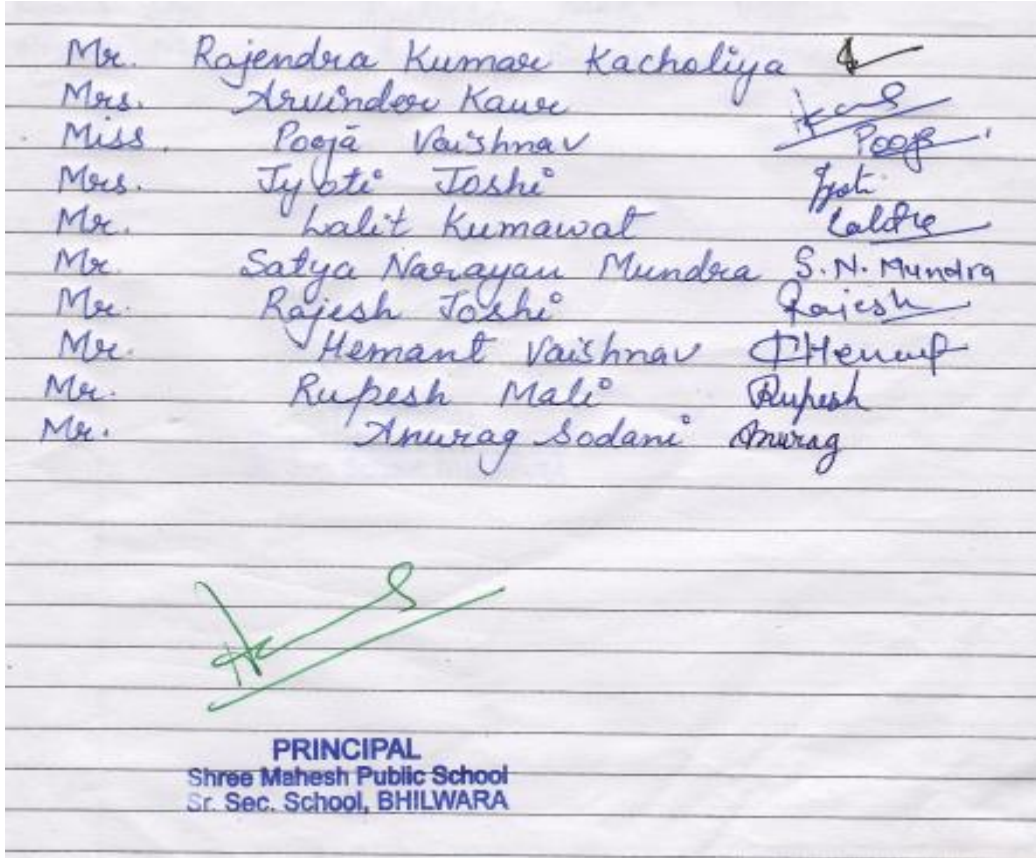 Mr. Rajendra Kumar Kacholiya
Mrs. Arvinder Kaur
Miss. Pooja Vaishnav Pooja
Mrs. Jyoti Joshi Jyoti
Mr. Lalit Kumawat
Mr. Satya Narayan Mundra S.N. Mundra
Mr. Rajesh Joshi Rajesh
Mr. Hemant Vaishnav
Mr. Rupesh Mali Rupesh
Mr. Anurag Sodani Anurag
PRINCIPAL
Shree Mahesh Public School
Sr. Sec. School, BHILWARA